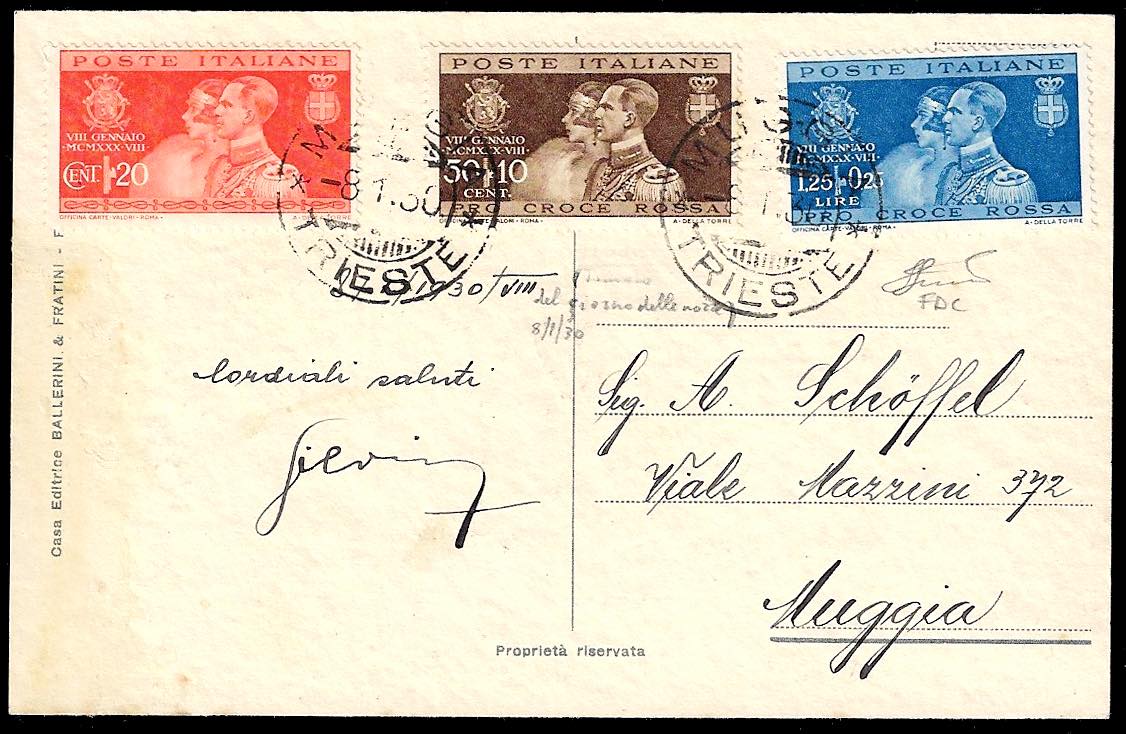 POSTE ITALIANE
VIII GENNAIO
-MCMXXX-VIII-
CENT. 20
OFFICINA CARTE-VALORI-ROMA-
POSTE ITALIANE
VIII GENNAIO
-MCMXXX-VIII-
50+10
CENT.
PRO CROCE ROSSA
OFFICINA CARTE-VALORI-ROMA- A-DELLA TORRE
POSTE ITALIANE
VIII GENNAIO
MCMXXX-VIII-
1,25+0,25
LIRE
PRO CROCE ROSSA
OFFICINA CARTE-VALORI-ROMA- A-DELLA TORRE
* -8.1.30
TRIESTE
MUGGIA
TRIESTE
1930/VIII
del giorno delle nozze
8/1/30
FDC
Cordiali saluti
Silvio
Sig. A. Schöffel
Viale Mazzini 372
Muggia
Casa Editrice BALLERINI & FRATINI - F
Proprietà riservata